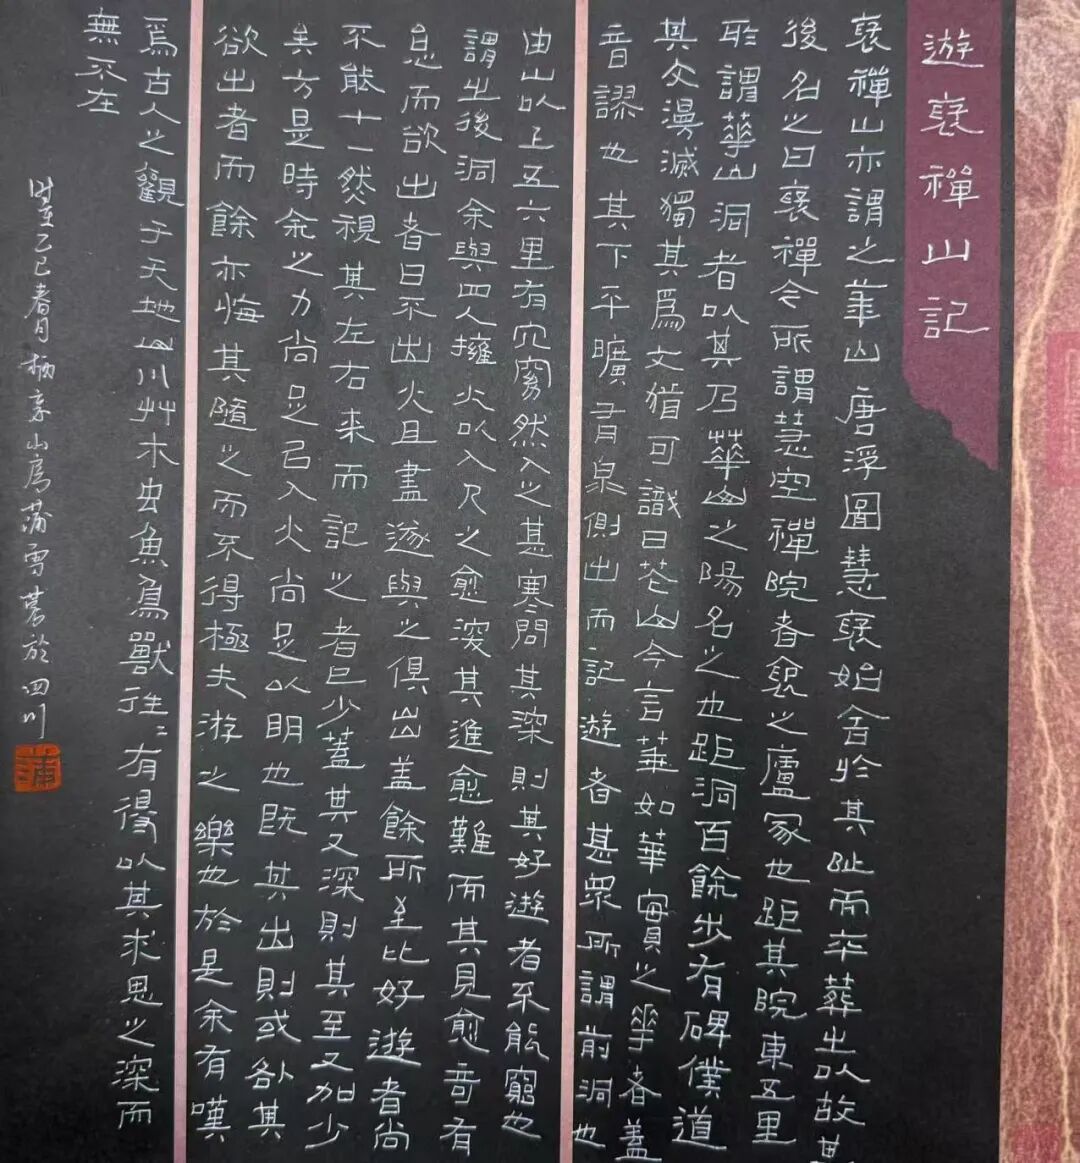 遊褒禪山記
褒禪山亦謂之華山唐浮圖慧褒始舍於其阯而卒葬之以故其
後名之曰褒禪今所謂慧空禪院者褒之廬冢也距其院東五里
所謂華山洞者以其乃華山之陽名之也距洞百餘步有碑僕道
其文漫滅獨其爲文猶可識曰花山今言華如華實之華者蓋
音謬也其下平曠有泉側出而記遊者甚衆所謂前洞也
由山以上五六里有穴窈然入之甚寒問其深則其好遊者不能窮也
謂之後洞余與四人擁火以入入之愈深其進愈難而其見愈奇有
怠而欲出者曰不出火且盡遂與之俱出盖餘所至比好遊者尚
不能十一然視其左右来而記之者已少蓋其又深則其至又加少
矣方是時余之力尚足以入火尚足以明也既其出則或咎其
欲出者而餘亦悔其隨之而不得極夫游之樂也於是余有嘆
焉古人之觀于天地山川艸木虫魚鳥獸往〻有得以其求思之深而
無不在
乙巳春月栖霞山房蒲雪茗於四川
蒲